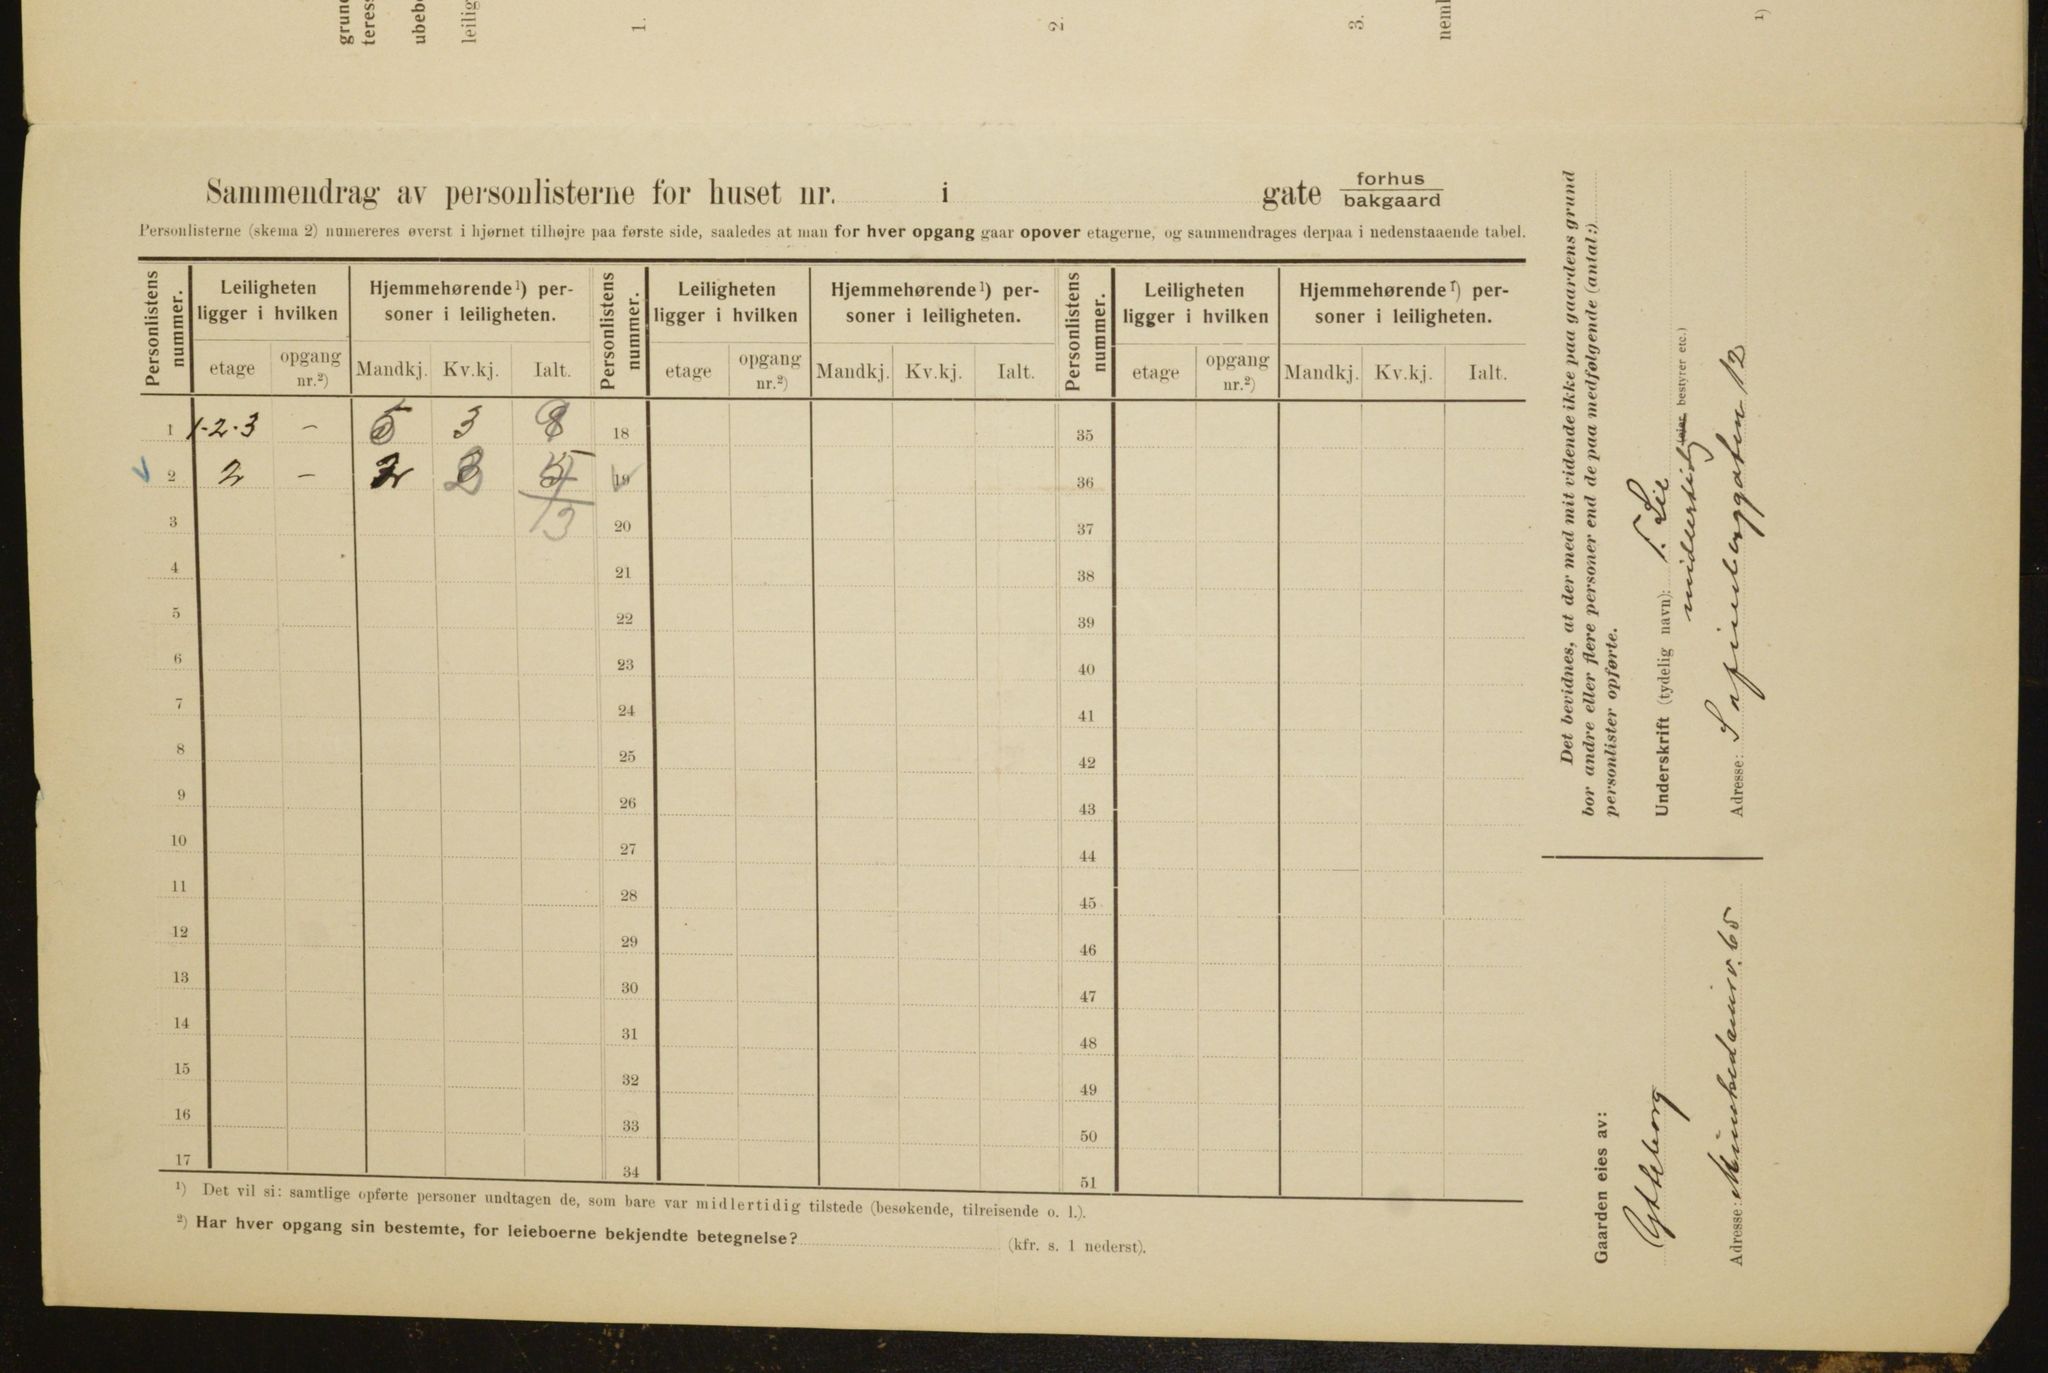 grun
teres
ubebo
leilig
1.
2.
3.
neml
1)
Sammendrag av personlisterne for huset nr. i gate forhus
bakgaard
Personlisterne (skema 2) numereres øverst i hjørnet tilhøjre paa første side, saaledes at man for hver opgang gaar opover etagerne, og sammendrages derpaa i nedenstaaende tabel.
Personlistens nummer. Leiligheten ligger i hvilken Hjemmehørende 1) personer i leiligheten. Personlistens nummer. Leiligheten ligger i hvilken Hjemmehørende 1) personer i leiligheten. Personlistens nummer. Leiligheten ligger i hvilken Hjemmehørende 1) personer i leiligheten.
etage opgang nr.2) Mandkj. Kv.kj. Ialt. etage opgang nr.2) Mandkj. Kv.kj. Ialt. etage opgang nr.2) Mandkj. Kv.kj. Ialt.
1 1-2-3 – 5 3 8 18 35
2 2 – 2 19 36
3 13 20 37
4 21 38
5 22 39
6 23 40
7 24 41
8 25 42
9 26 43
10 27 44
11 28 45
12 29 46
13 30 47
14 31 48
15 32 49
16 33 50
17 34 51
1) Det vil si: samtlige opførte personer undtagen de, som bare var midlertidig tilstede (besøkende, tilreisende o. l.).
2) Har hver opgang sin bestemte, for leieboerne bekjendte betegnelse? (kfr. s. 1 nederst).
Det bevidnes, at der med mit vidende ikke paa gaardens grund
bor andre eller flere personer end de paa medfølgende (antal:)
personlister opførte.
Underskrift (tydelig navn): T. Lie
midlertidig (eier bestyrer etc.)
Adresse: Sofienberggaten 12
Gaarden eies av:
Gytteborg
Adresse: Munkedamsv. 65